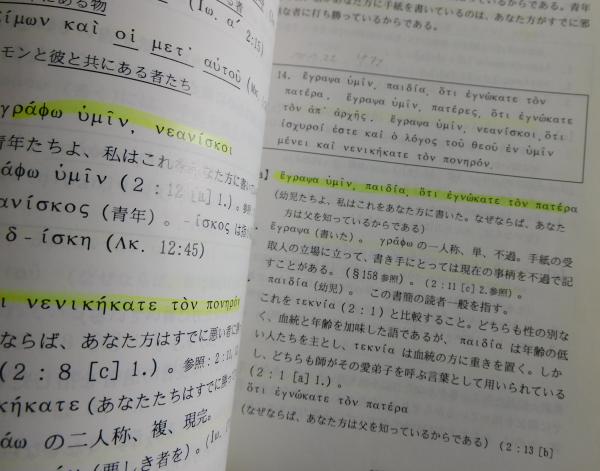 (Ἰω. α′ 2:15)
ίμων καὶ οἱ μετ᾽ αὐτοῦ
モンと彼と共にある者たち
γράφω ὑμῖν, νεανίσκοι
青年たちよ、私はこれをあなた方に書いて
άφω ὑμῖν (2:12 [a] 1.)。
ανίσκος (青年)。-ίσκος は指
δ-ίσκη (Λκ. 12:45)
ι νενικήκατε τὸν πονηρόν
ならば、あなた方はすでに悪い者に
(2:8 [c] 1.)。参照:2:11,
κήκατε (あなたたちはすでに
άω の二人称、複、現完。
(悪しき者を)。
に手紙を書いているのは、あなた方がすでに邪
な者に打ち勝っているからである。
14. ἔγραψα ὑμῖν, παιδία, ὅτι ἐγνώκατε τὸν
πατέρα. ἔγραψα ὑμῖν, πατέρες, ὅτι ἐγνώκατε
τὸν ἀπ᾽ ἀρχῆς. ἔγραψα ὑμῖν, νεανίσκοι, ὅτι
ἰσχυροί ἐστε καὶ ὁ λόγος τοῦ θεοῦ ἐν ὑμῖν
μένει καὶ νενικήκατε τὸν πονηρόν.
a] ἔγραψα ὑμῖν, παιδία, ὅτι ἐγνώκατε τὸν πατέρα
(幼児たちよ、私はこれをあなた方に書いた。なぜならば、あなた
方は父を知っているからである)
. ἔγραψα (書いた)。 γράφω の一人称、単、不過。手紙の受
取人の立場に立って、書き手にとっては現在の事柄を不過で記
すことがある。(§158参照)。(2:11 [c] 2.参照)。
. παιδία (幼児)。 この書簡の読者一般を指す。
これを τεκνία (2:1) と比較すること。どちらも性の別な
く、血統と年齢を加味した語であるが、παιδία は年齢の低
い人たちを主とし、τεκνία は血統の方に重きを置く。しか
し、どちらも師がその愛弟子を呼ぶ言葉として用いられている
(2:1 [a] 1.)。
ὅτι ἐγνώκατε τὸν πατέρα
(なぜならば、あなた方は父を知っているからである) (2:13 [b]